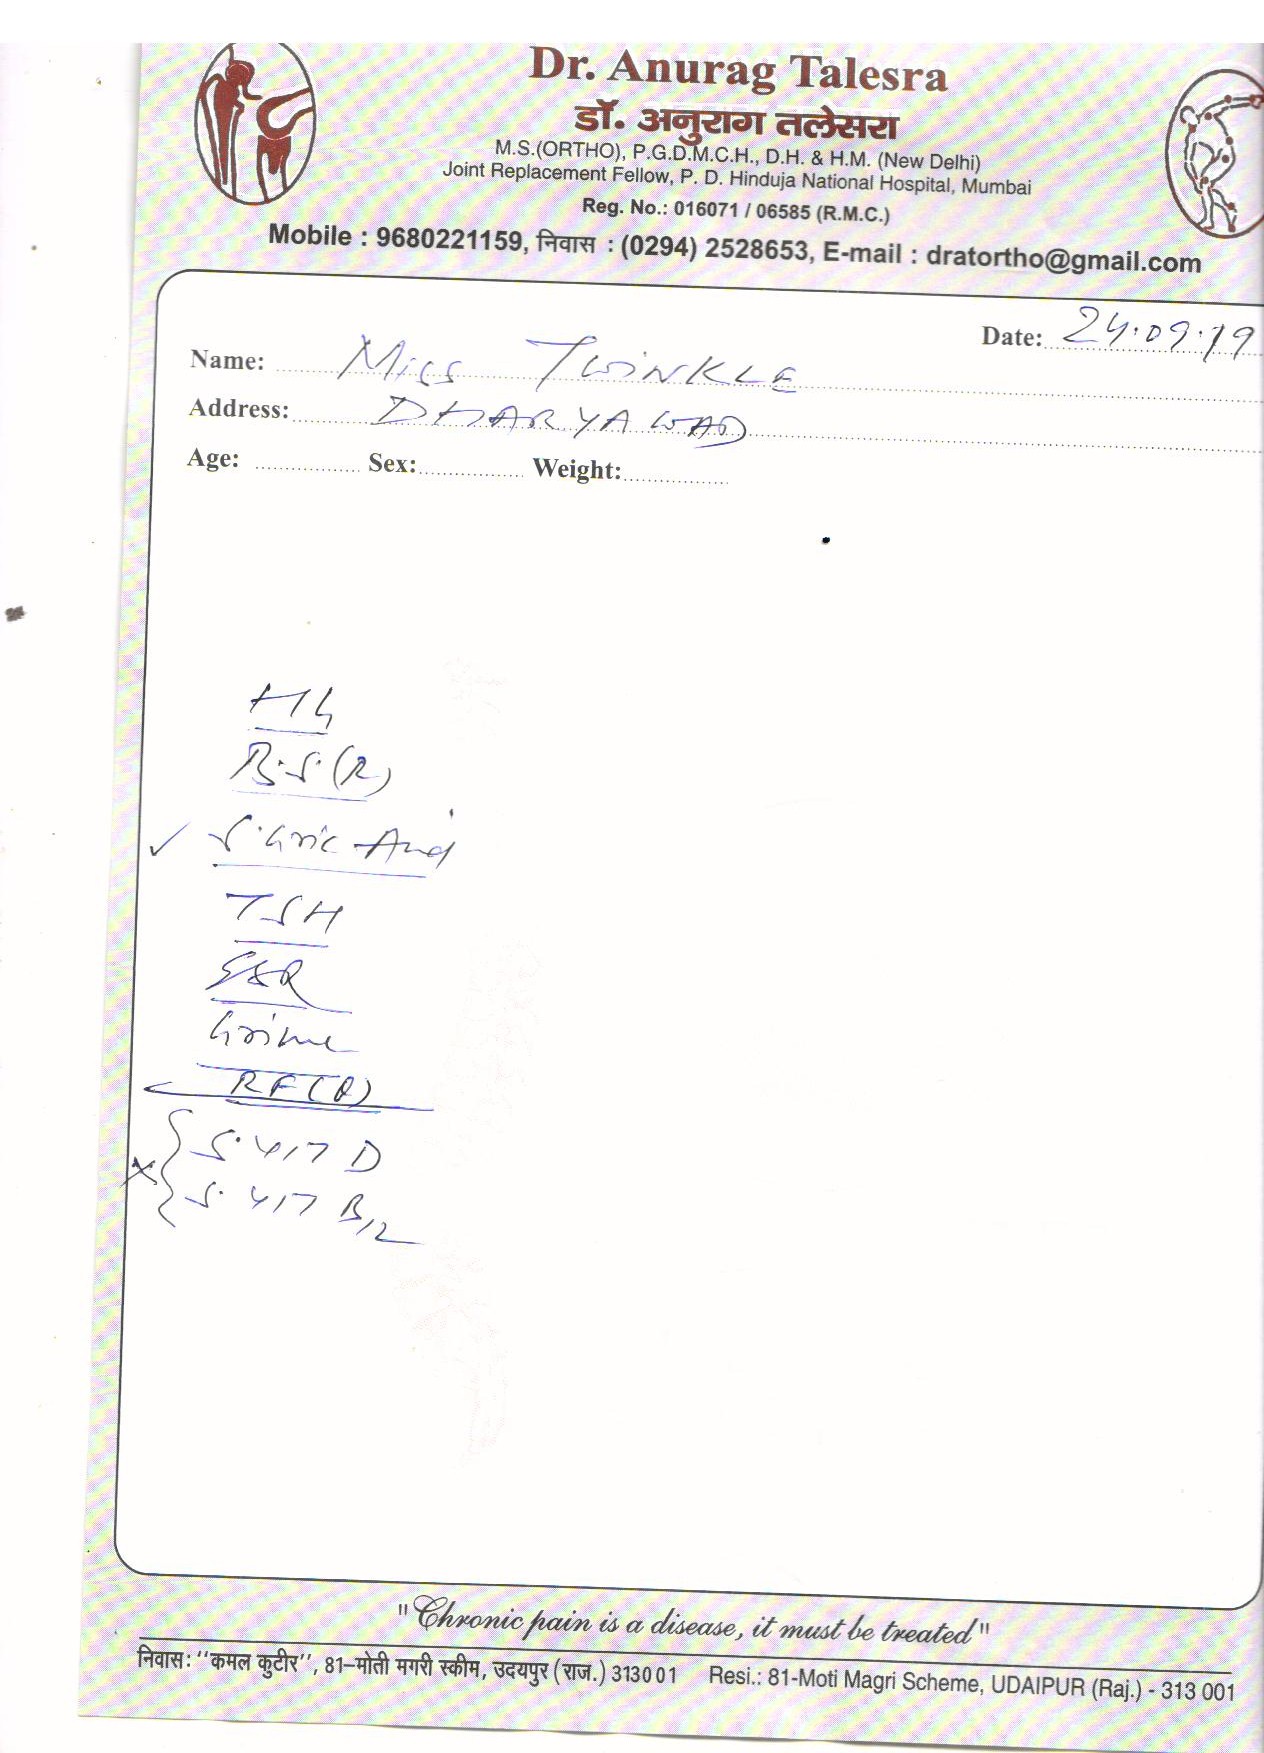 Dr. Anurag Talesra
डॉ. अनुराग तलेसरा
M.S.(ORTHO), P.G.D.M.C.H., D.H. & H.M. (New Delhi)
Joint Replacement Fellow, P. D. Hinduja National Hospital, Mumbai
Reg. No.: 016071 / 06585 (R.M.C.)
Mobile : 9680221159, निवास : (0294) 2528653, E-mail : dratortho@gmail.com
Date: 24.09.19
Name: Miss TWINKLE
Address: DHARYAWAD
Age: Sex: Weight:
Hb
B.S.(R)
✓ S. Uric Acid
TSH
ESR
Urine
RF (Q)
S. VIT D
S. VIT B12
"Chronic pain is a disease, it must be treated"
निवास: "कमल कुटीर", 81-मोती मगरी स्कीम, उदयपुर (राज.) 313001 Resi.: 81-Moti Magri Scheme, UDAIPUR (Raj.) - 313 001